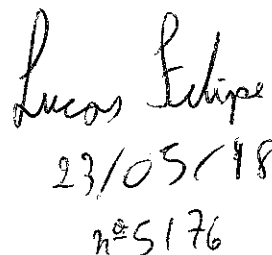 Lucas Felipe
23/05/18
nº 5176